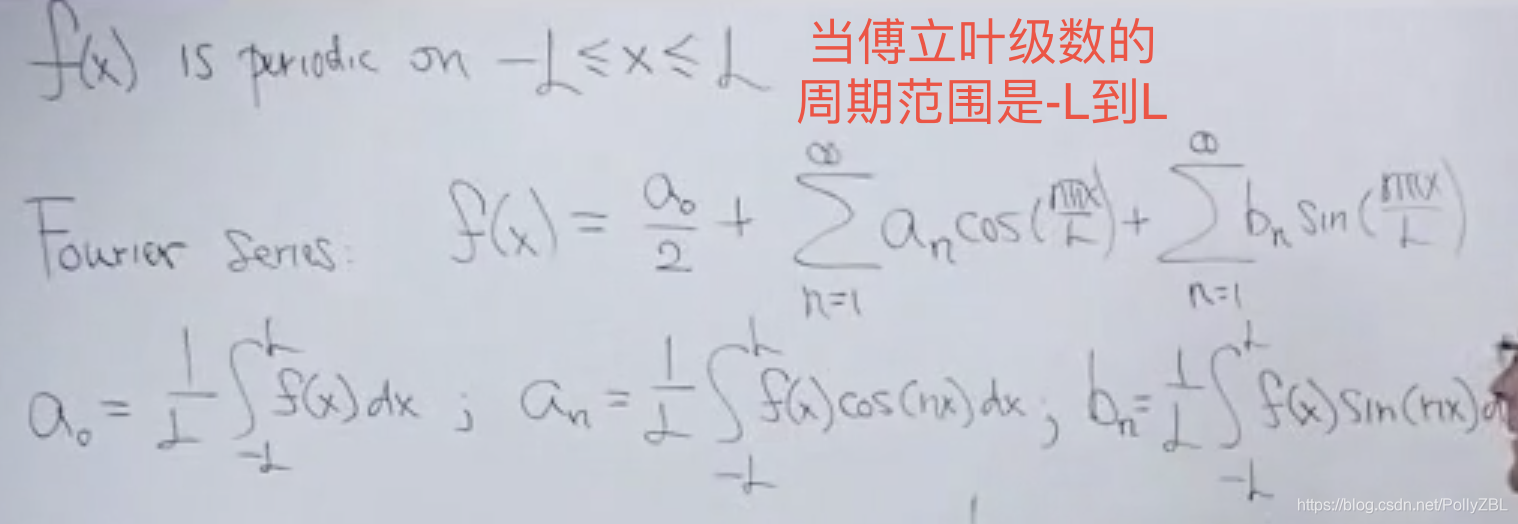 f(x) is periodic on -L ≤ x ≤ L
当傅立叶级数的
周期范围是-L到L
Fourier Series: f(x) = a₀/2 + ∑_{n=1}^{∞} aₙ cos(nπx/L) + ∑_{n=1}^{∞} bₙ sin(nπx/L)
a₀ = 1/L ∫_{-L}^{L} f(x) dx ; aₙ = 1/L ∫_{-L}^{L} f(x) cos(nx) dx ; bₙ = 1/L ∫_{-L}^{L} f(x) sin(nx) d
https://blog.csdn.net/PollyZBL